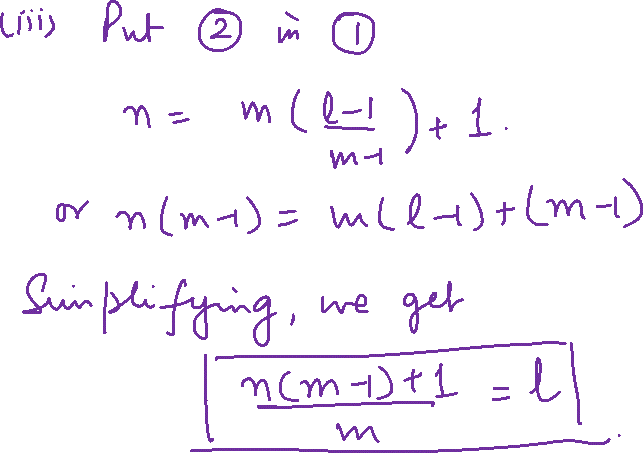 (iii) Put ② in ①
n = m ( (l-1)/(m-1) ) + 1.
or n(m-1) = m(l-1)+(m-1)
Simplifying, we get
(n(m-1)+1)/m = l.